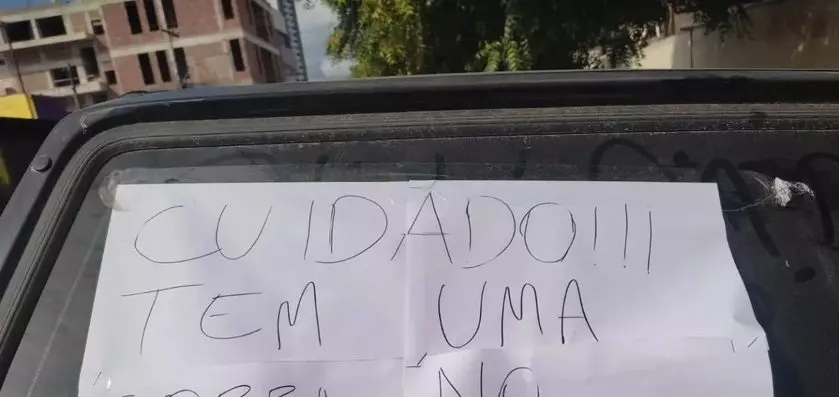 CUIDADO!!!
TEM UMA
NO